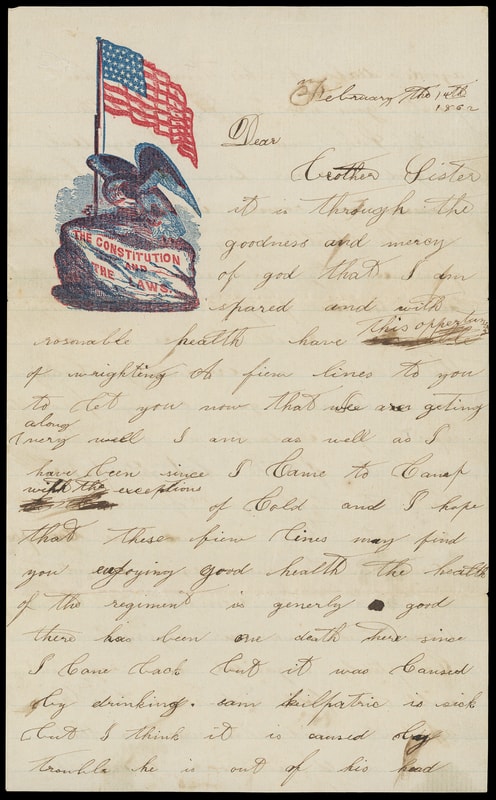 February the 14th
1862
THE CONSTITUTION
AND
THE LAWS
Dear
brother Sister
it is through the
goodness and mercy
of god that I am
spared and with
rosonable health have this oppertunity
of wrighting A fiew lines to you
to let you now that we are geting
along
very well I am as well as I
have been since I Came to Camp
with the exceptions
of Cold and I hope
that these fiew lines may find
you enjoying good health the health
of the regiment is generly good
there has been one death there since
I Came back but it was Caused
by drinking. sam kilpatric is sick
but I think it is caused by
trouble he is out of his head